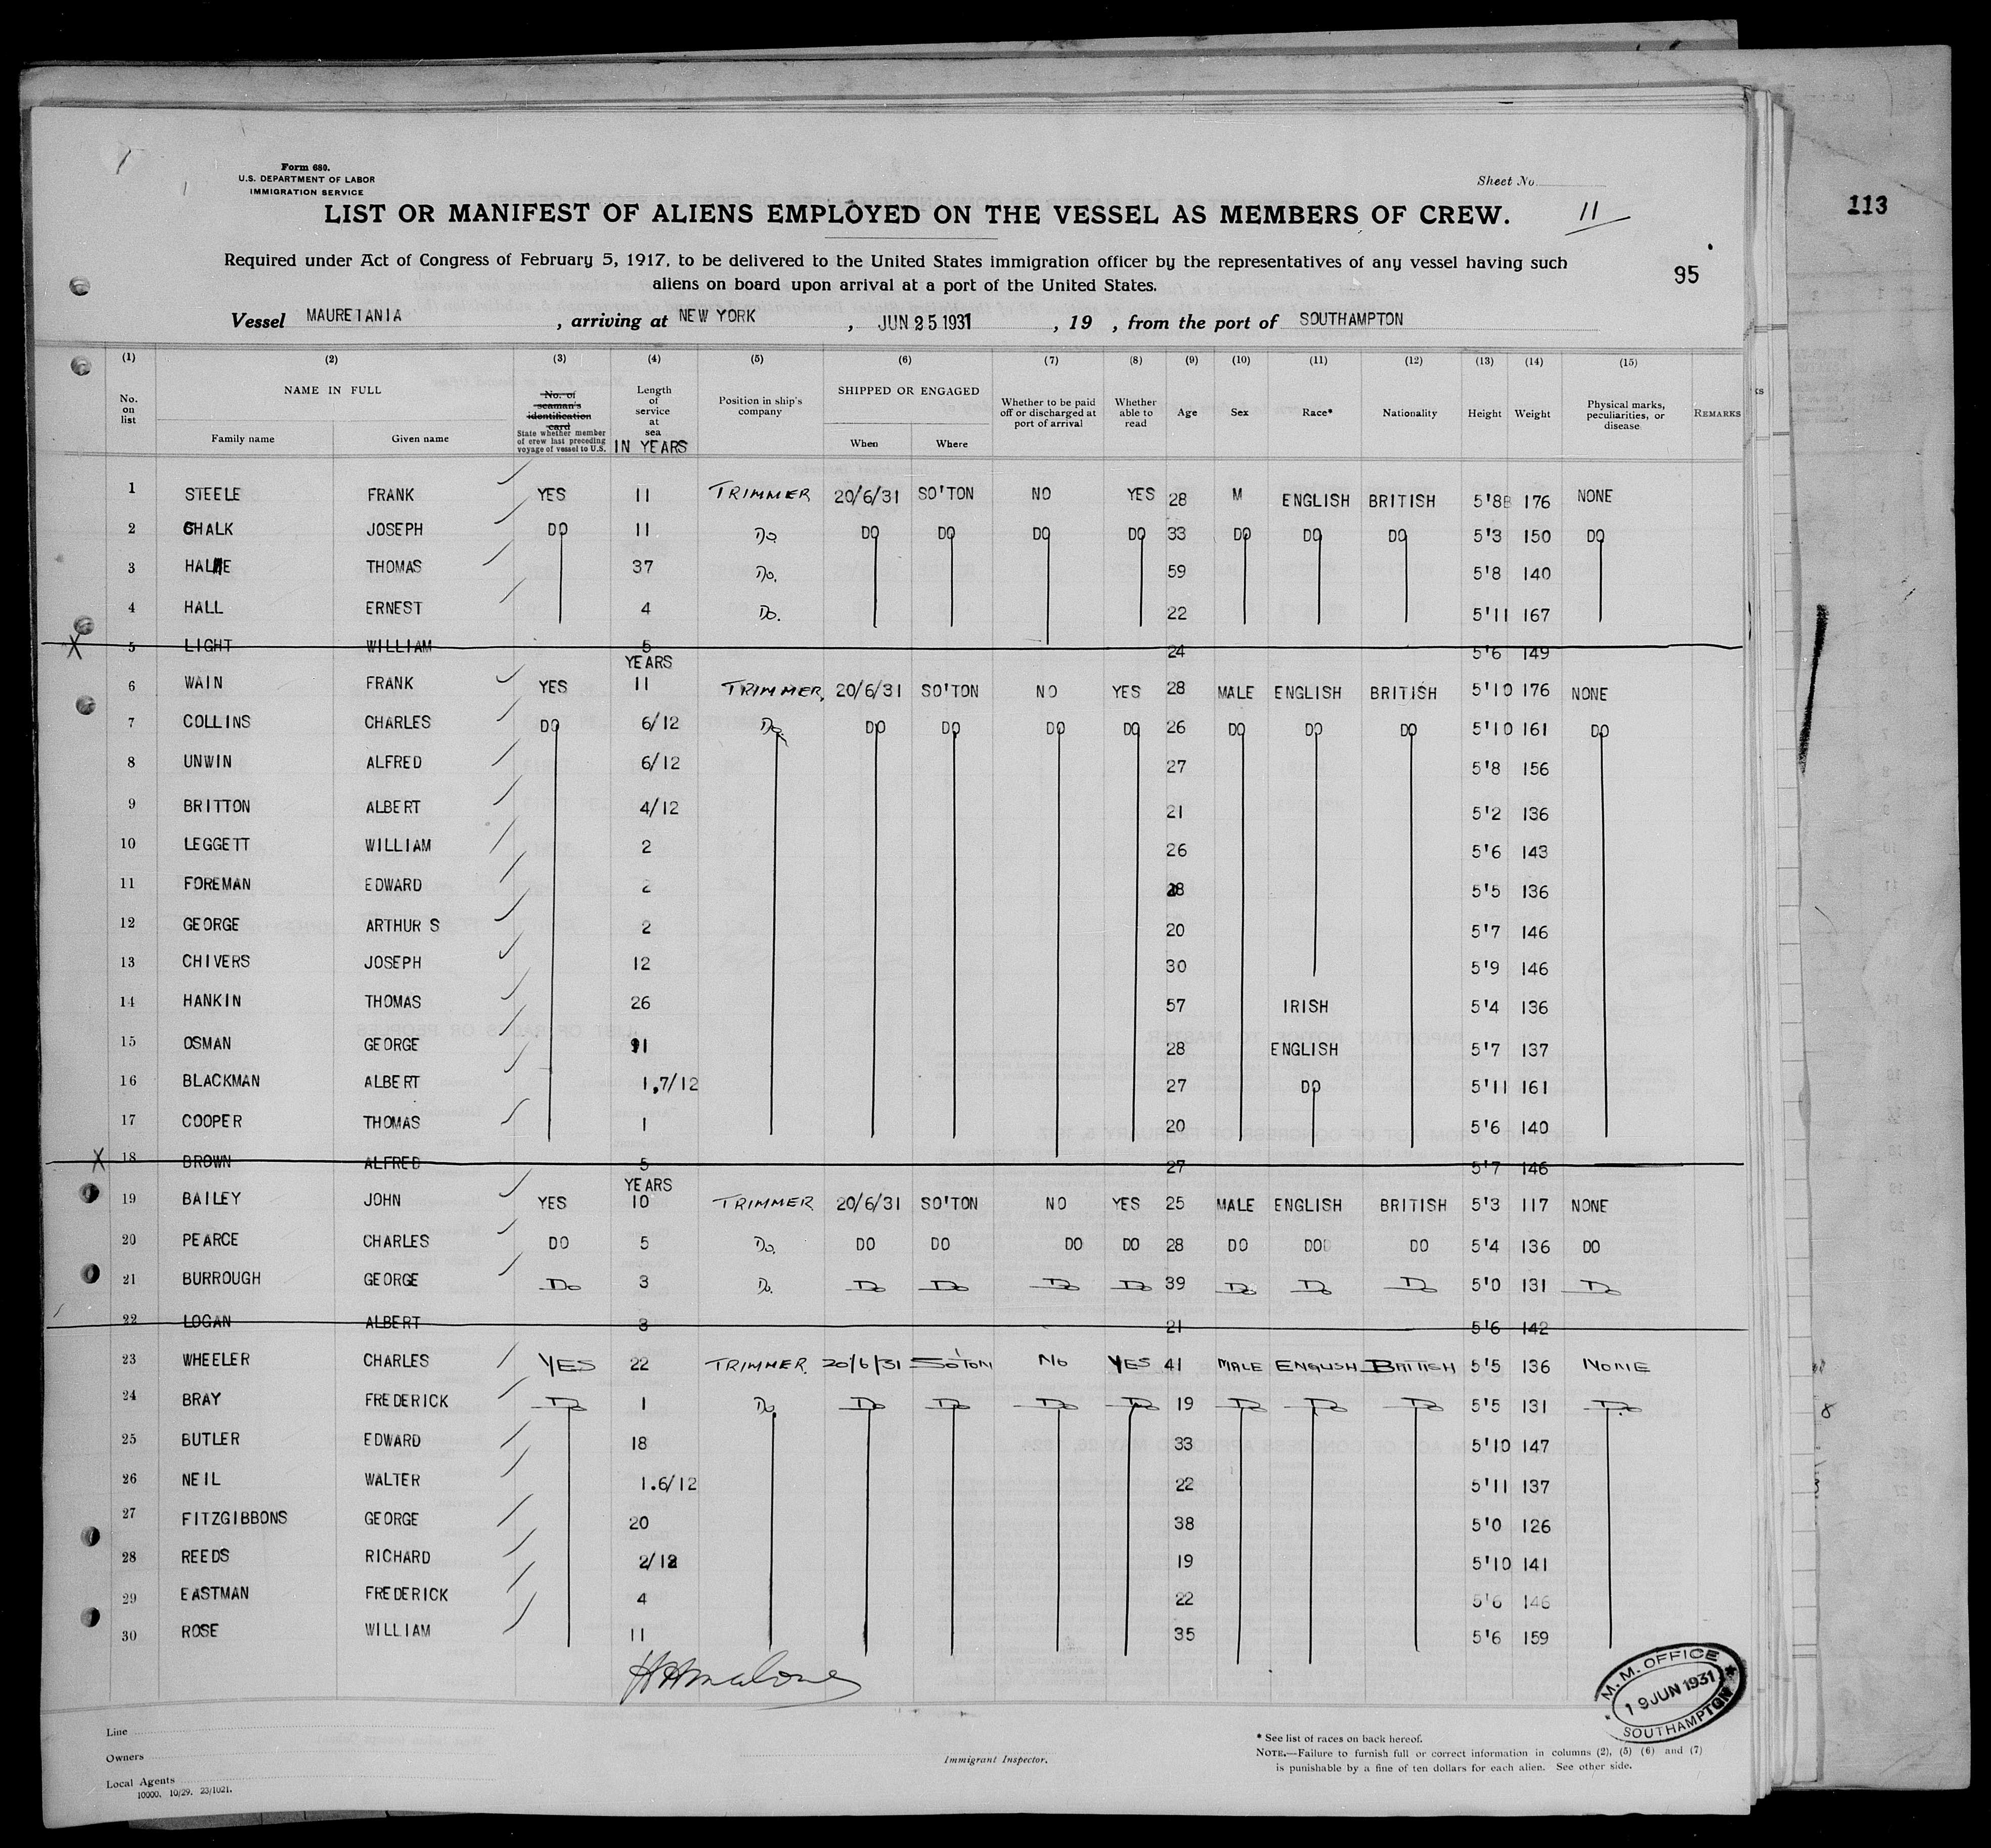 Form 680.
U.S. DEPARTMENT OF LABOR
IMMIGRATION SERVICE
Sheet No.
LIST OR MANIFEST OF ALIENS EMPLOYED ON THE VESSEL AS MEMBERS OF CREW.
11
113
Required under Act of Congress of February 5, 1917, to be delivered to the United States immigration officer by the representatives of any vessel having such
aliens on board upon arrival at a port of the United States.
95
Vessel MAURETANIA, arriving at NEW YORK, JUN 25 1931, 19 , from the port of SOUTHAMPTON
(1) (2) (3) (4) (5) (6) (7) (8) (9) (10) (11) (12) (13) (14) (15)
No. on list
NAME IN FULL
Family name Given name
No. of seaman's identification card
State whether member of crew last preceding voyage of vessel to U.S.
Length of service at sea IN YEARS
Position in ship's company
SHIPPED OR ENGAGED
When Where
Whether to be paid off or discharged at port of arrival
Whether able to read
Age Sex Race* Nationality Height Weight
Physical marks, peculiarities, or disease
REMARKS
1 STEELE FRANK YES 11 TRIMMER 20/6/31 SO'TON NO YES 28 M ENGLISH BRITISH 5'8 176 NONE
2 CHALK JOSEPH DO 11 Do. DO DO DO DO 33 DO DO DO 5'3 150 DO
3 THOMAS 37 Do. 59 5'8 140
4 HALL ERNEST 4 Do. 22 5'11 167
X 5 LIGHT WILLIAM 5 24 5'6 149
YEARS
6 WAIN FRANK YES 11 TRIMMER, 20/6/31 SO'TON NO YES 28 MALE ENGLISH BRITISH 5'10 176 NONE
7 COLLINS CHARLES DO 6/12 Do. DO DO DO DO 26 DO DO DO 5'10 161 DO
8 UNWIN ALFRED 6/12 27 5'8 156
9 BRITTON ALBERT 4/12 21 5'2 136
10 LEGGETT WILLIAM 2 26 5'6 143
11 FOREMAN EDWARD 2 28 5'5 136
12 GEORGE ARTHUR S 2 20 5'7 146
13 CHIVERS JOSEPH 12 30 5'9 146
14 HANKIN THOMAS 26 57 IRISH 5'4 136
15 OSMAN GEORGE 28 ENGLISH 5'7 137
16 BLACKMAN ALBERT 1,7/12 27 DO 5'11 161
17 COOPER THOMAS 1 20 5'6 140
X 18 BROWN ALFRED 5 27 5'7 146
YEARS
19 BAILEY JOHN YES 10 TRIMMER 20/6/31 SO'TON NO YES 25 MALE ENGLISH BRITISH 5'3 117 NONE
20 PEARCE CHARLES DO 5 Do. DO DO DO DO 28 DO DO DO 5'4 136 DO
21 BURROUGH GEORGE Do 3 Do. Do Do Do Do 39 Do Do Do 5'0 131 Do
22 LOGAN ALBERT 3 21 5'6 142
23 WHEELER CHARLES YES 22 TRIMMER. 20/6/31 SO'TON No YES 41 MALE ENGLISH BRITISH 5'5 136 NONE
24 BRAY FREDERICK Do 1 Do Do Do Do Do 19 Do Do Do 5'5 131 Do
25 BUTLER EDWARD 18 33 5'10 147
26 NEIL WALTER 1.6/12 22 5'11 137
27 FITZGIBBONS GEORGE 20 38 5'0 126
28 REEDS RICHARD 2/12 19 5'10 141
29 EASTMAN FREDERICK 4 22 5'6 146
30 ROSE WILLIAM 11 35 5'6 159
M.M. OFFICE
19 JUN 1931
SOUTHAMPTON
Line
Owners
Local Agents
10000. 10/29. 23/1021.
Immigrant Inspector.
* See list of races on back hereof.
NOTE.—Failure to furnish full or correct information in columns (2), (5) (6) and (7)
is punishable by a fine of ten dollars for each alien. See other side.